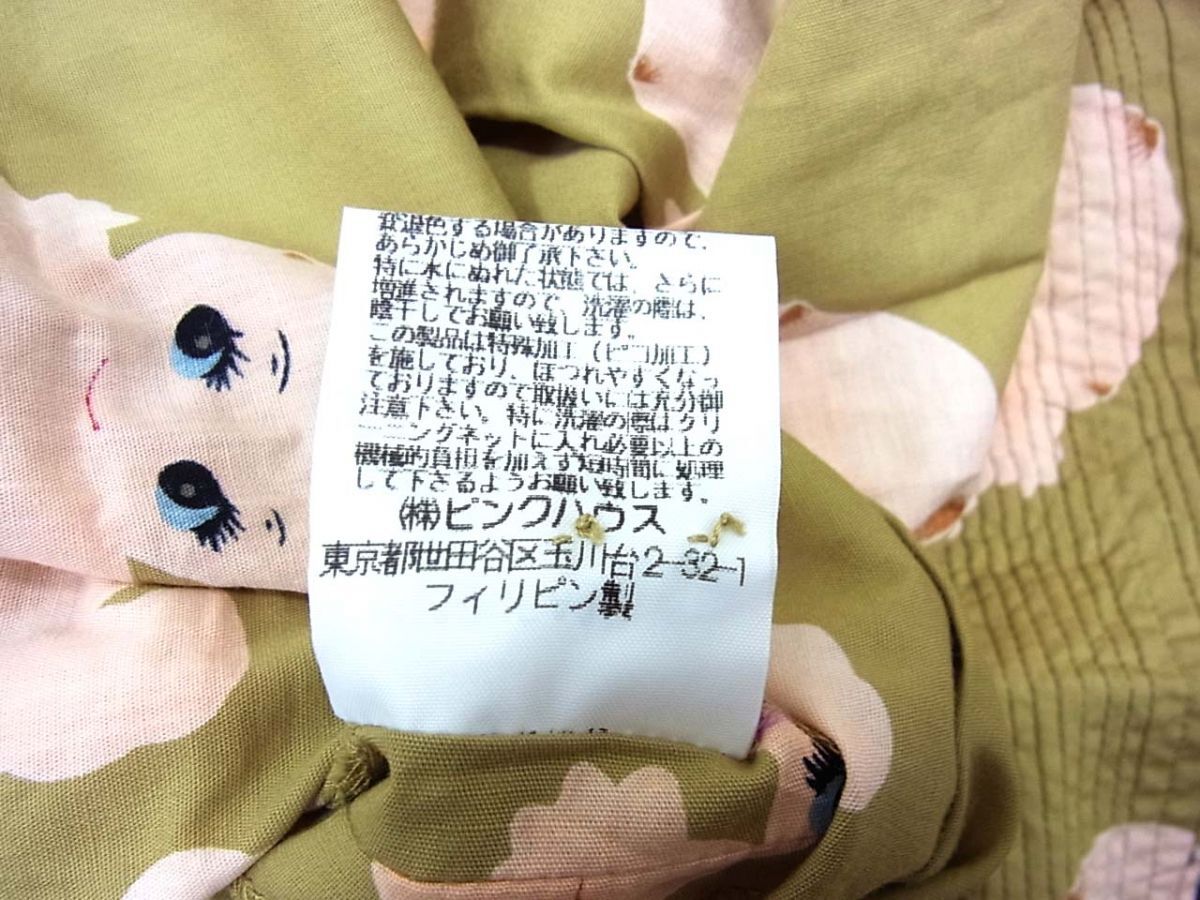 変退色する場合がありますので、
あらかじめ御了承下さい。
特に水にぬれた状態では、さらに
増進されますので、洗濯の際は、
陰干してお願い致します。
この製品は特殊加工（ピコ加工）
を施しており、ほつれやすくなっ
ておりますので取扱いには充分御
注意下さい。特に洗濯の際はクリ
ーニングネットに入れ必要以上の
機械的負担を加えず短時間に処理
して下さるようお願い致します。
㈱ピンクハウス
東京都世田谷区玉川台2-32-1
フィリピン製